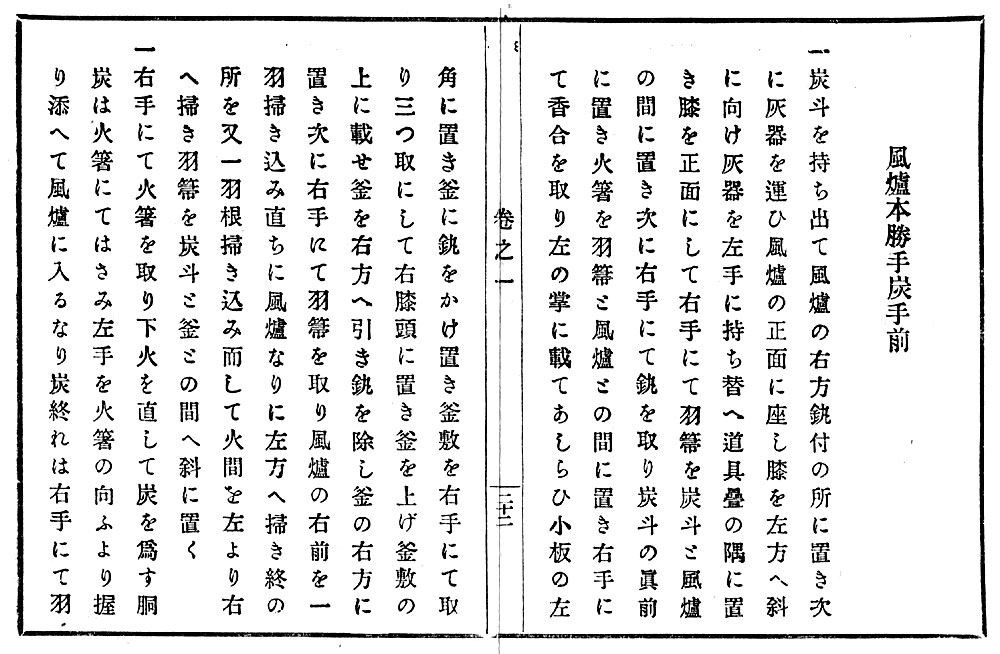 風爐本勝手炭手前
一炭斗を持ち出て風爐の右方釻付の所に置き次
に灰器を運ひ風爐の正面に座し膝を左方へ斜
に向け灰器を左手に持ち替へ道具疊の隅に置
き膝を正面にして右手にて羽箒を炭斗と風爐
の間に置き次に右手にて釻を取り炭斗の眞前
に置き火箸を羽箒と風爐との間に置き右手に
て香合を取り左の掌に載てあしらひ小板の左
卷之一
二十二
角に置き釜に釻をかけ置き釜敷を右手にて取
り三つ取にして右膝頭に置き釜を上げ釜敷の
上に載せ釜を右方へ引き釻を除し釜の右方に
置き次に右手にて羽箒を取り風爐の右前を一
羽掃き込み直ちに風爐なりに左方へ掃き終の
所を又一羽根掃き込み而して火間を左より右
へ掃き羽箒を炭斗と釜との間へ斜に置く
一右手にて火箸を取り下火を直して炭を爲す胴
炭は火箸にてはさみ左手を火箸の向ふより握
り添へて風爐に入るなり炭終れは右手にて羽